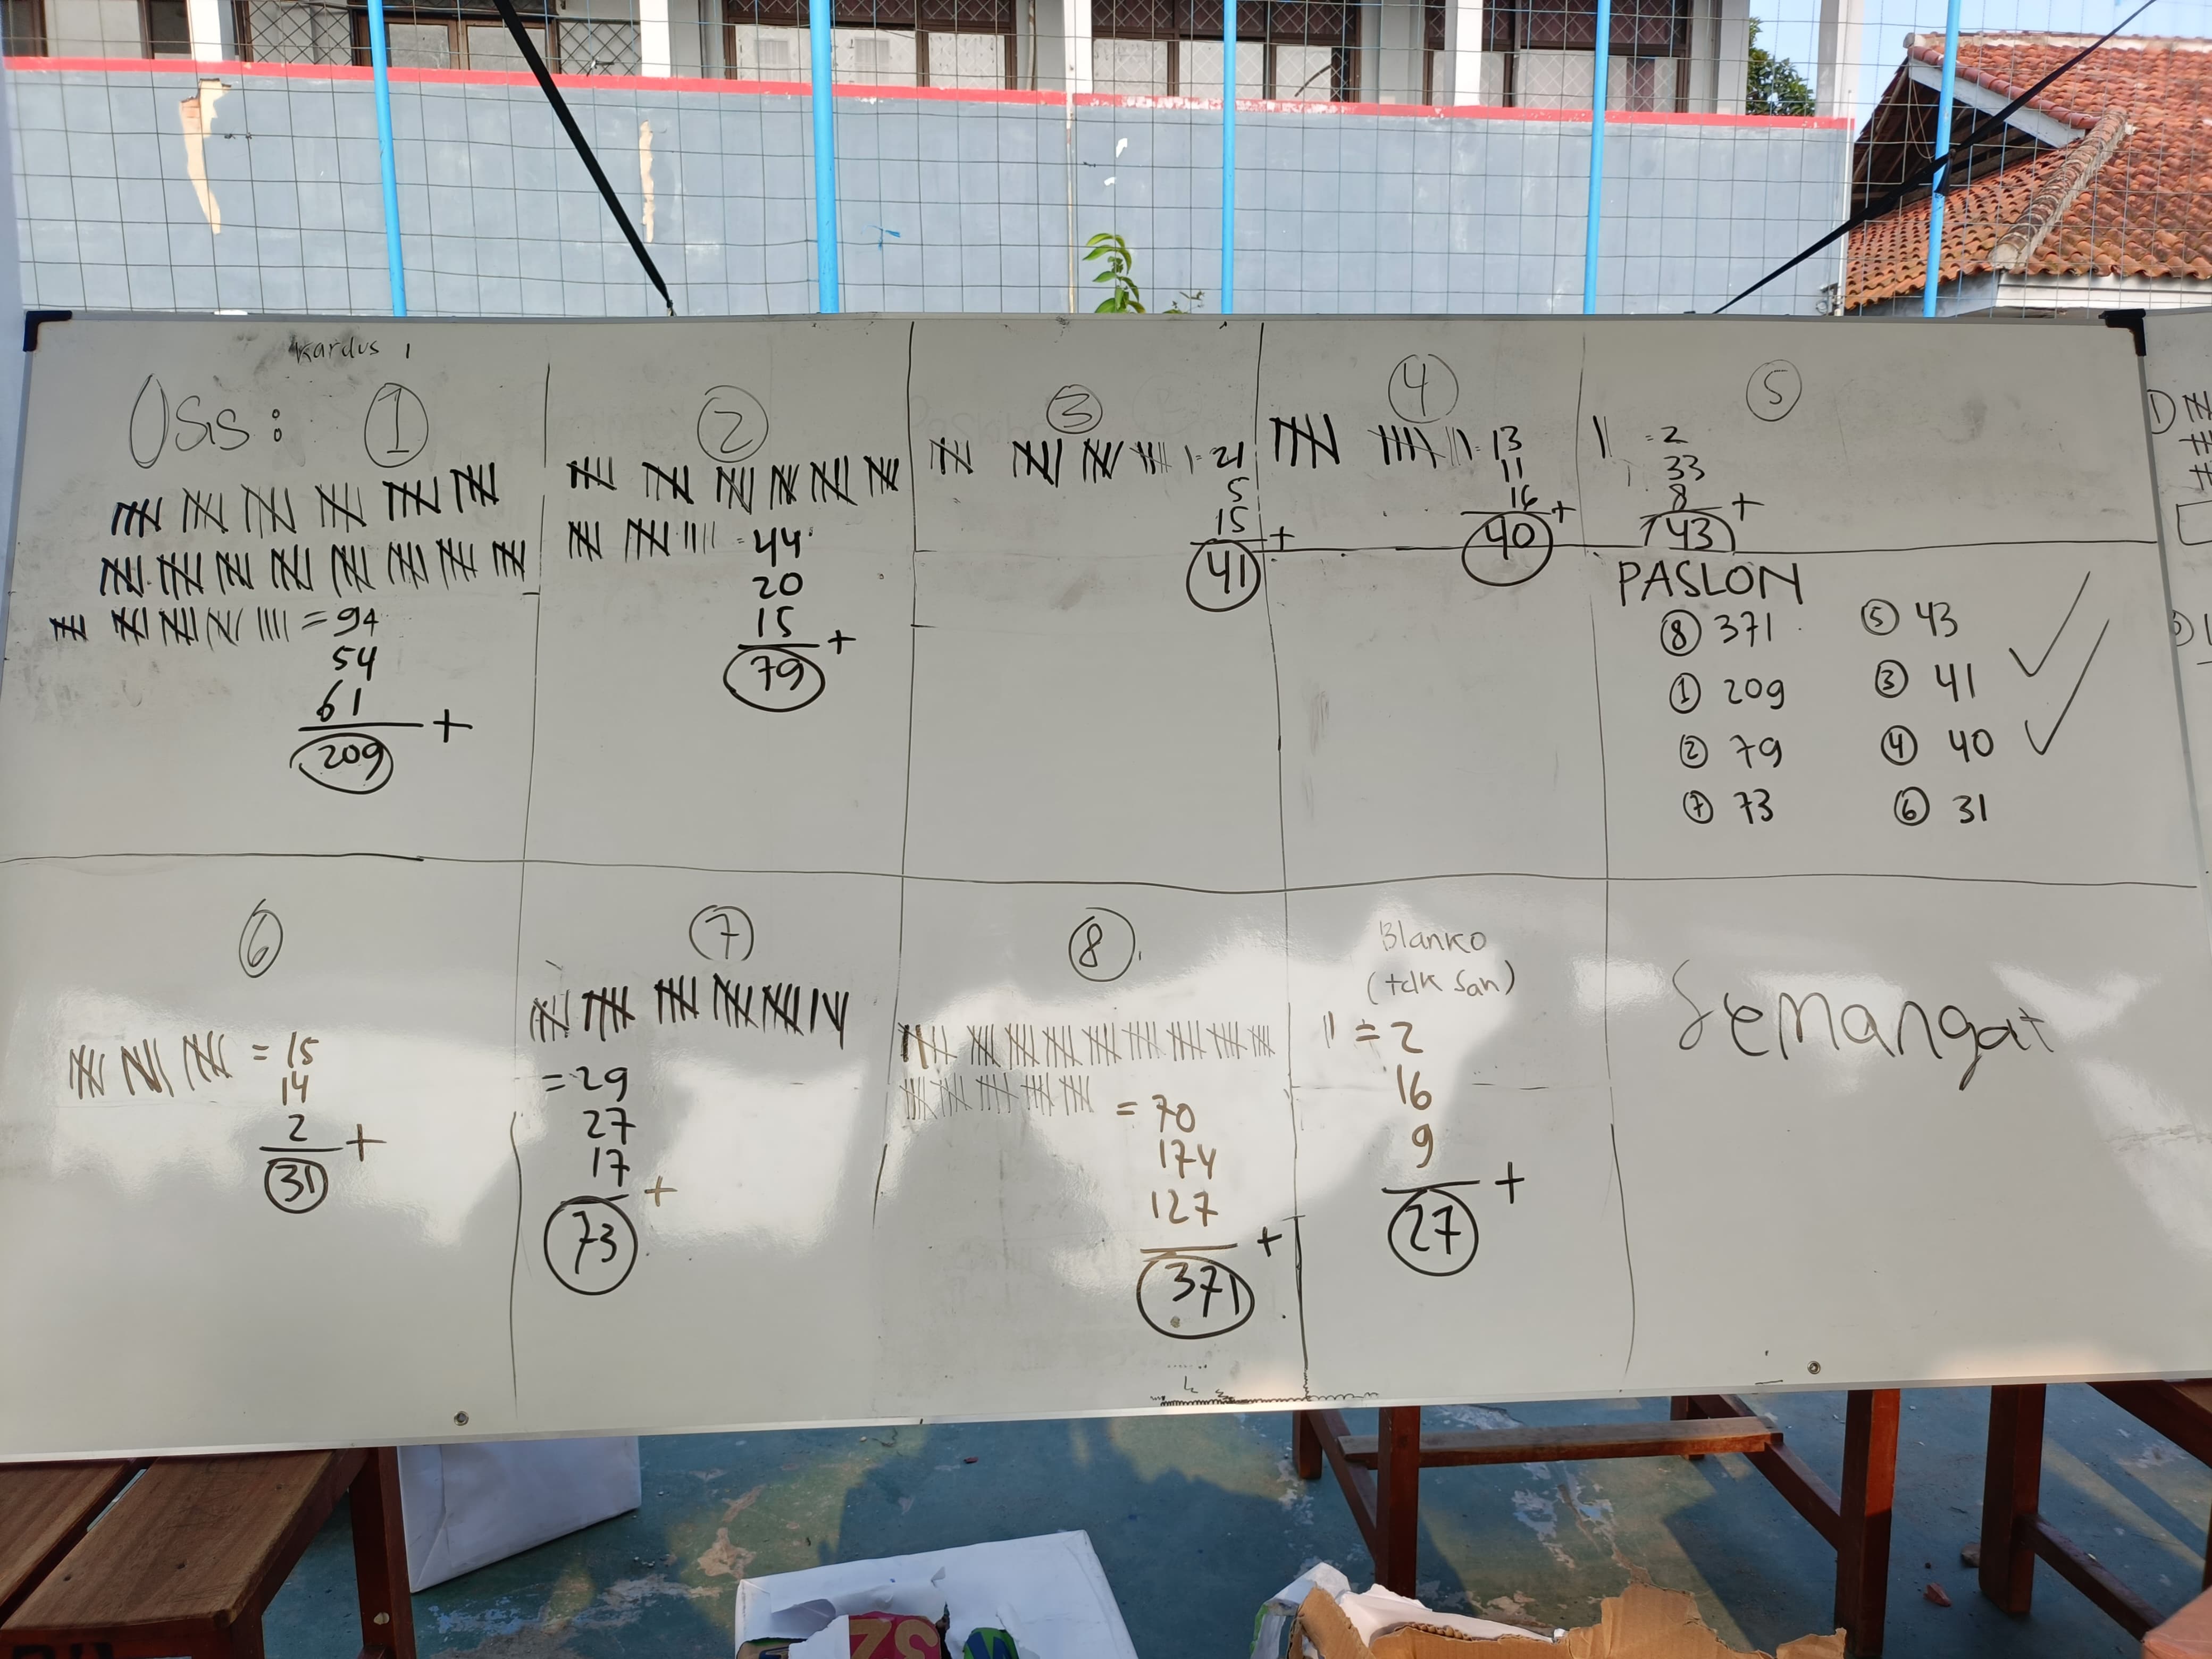 Kardus 1
Osis: 1
= 94
54
61 +
209
2
= 44
20
15 +
79
3
= 21
5
15 +
41
4
= 13
11
16 +
40
5
= 2
33
8 +
43
PASLON
8 371
1 209
2 79
7 73
5 43
3 41
4 40
6 31
6
= 15
14
2 +
31
7
= 29
27
17 +
73
8
= 70
174
127 +
371
Blanko
(tdk Sah)
= 2
16
9 +
27
Semangat